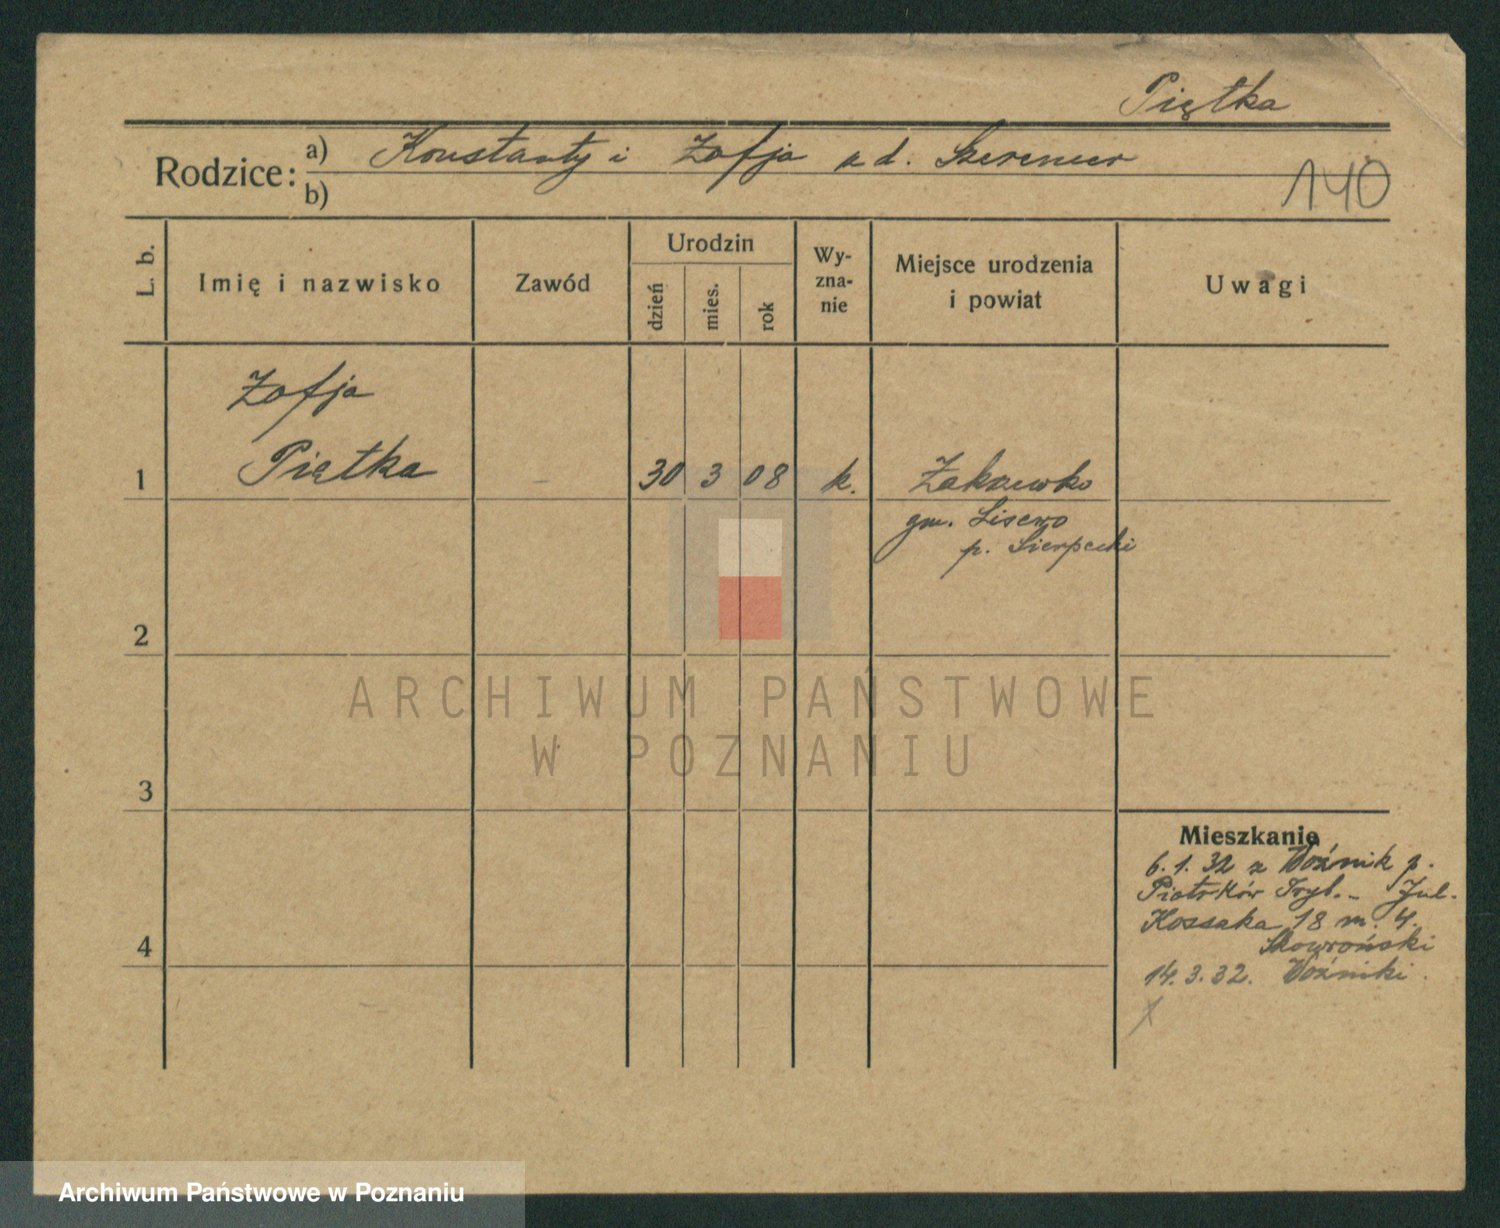 Piętka
Rodzice: a) Konstanty i Zofja z d.
b)
140
L. b.
Imię i nazwisko
Zawód
Urodzin
dzień
mies.
rok
Wy-
zna-
nie
Miejsce urodzenia
i powiat
Uwagi
Zofja
1 Piętka 30 3 08 k. Zakrzewko
gm. Lisewo
p. Sierpecki
2
3
4
ARCHIWUM PAŃSTWOWE
W POZNANIU
Mieszkanie
6.1.32 z Woźnik p.
Piotrków Tryb. - Jul.
Kossaka 18 m. 4.
Skowroński
14.3.32. Woźniki.
Archiwum Państwowe w Poznaniu